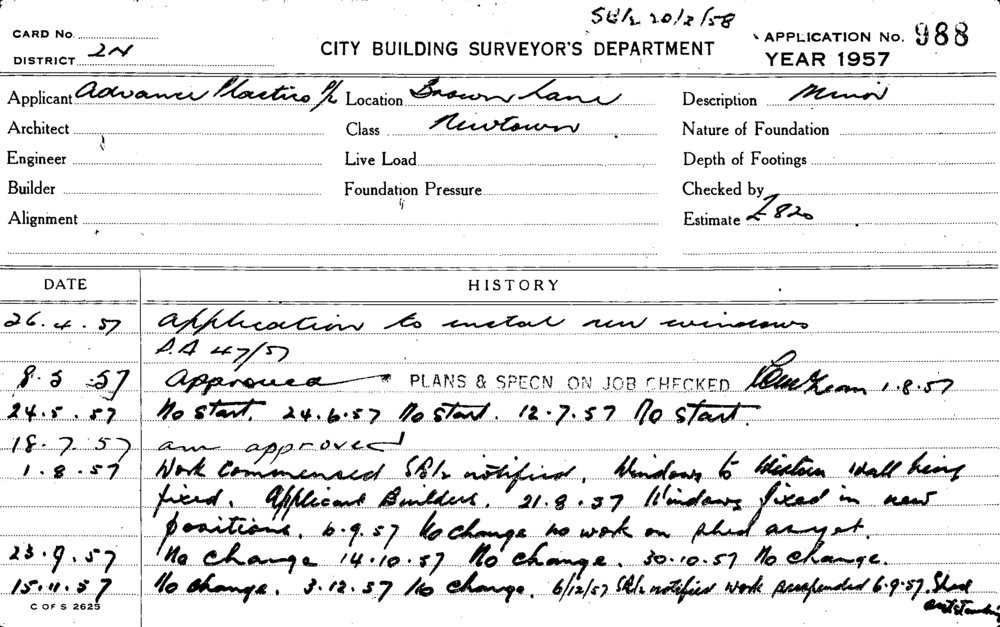 SB/2 20/2/58
CARD No.
DISTRICT 2N
CITY BUILDING SURVEYOR'S DEPARTMENT
APPLICATION No. 988
YEAR 1957
Applicant Advance Plastics P/L Location Brown Lane Description Minor
Architect Class Newtown Nature of Foundation
Engineer Live Load Depth of Footings
Builder Foundation Pressure Checked by
Alignment Estimate £820
DATE HISTORY
26.4.57 Application to instal new windows
D.A 47/57
8.5.57 Approved PLANS & SPECN ON JOB CHECKED 1.8.57
24.5.57 No start. 24.6.57 No start. 12.7.57 No start.
18.7.57 am approved
1.8.57 Work Commensed SB/2 notified. Windows to Western wall being
fixed. Applicant Builders. 21.8.57 Windows fixed in new
positions. 6.9.57 No change no work on shed as yet.
23.9.57 No change 14.10.57 No change. 30.10.57 No change.
15.11.57 No change. 3.12.57 No change. 6/12/57 SB/2 notified work suspended 6.9.57. Shed
outstanding
C OF S 2625